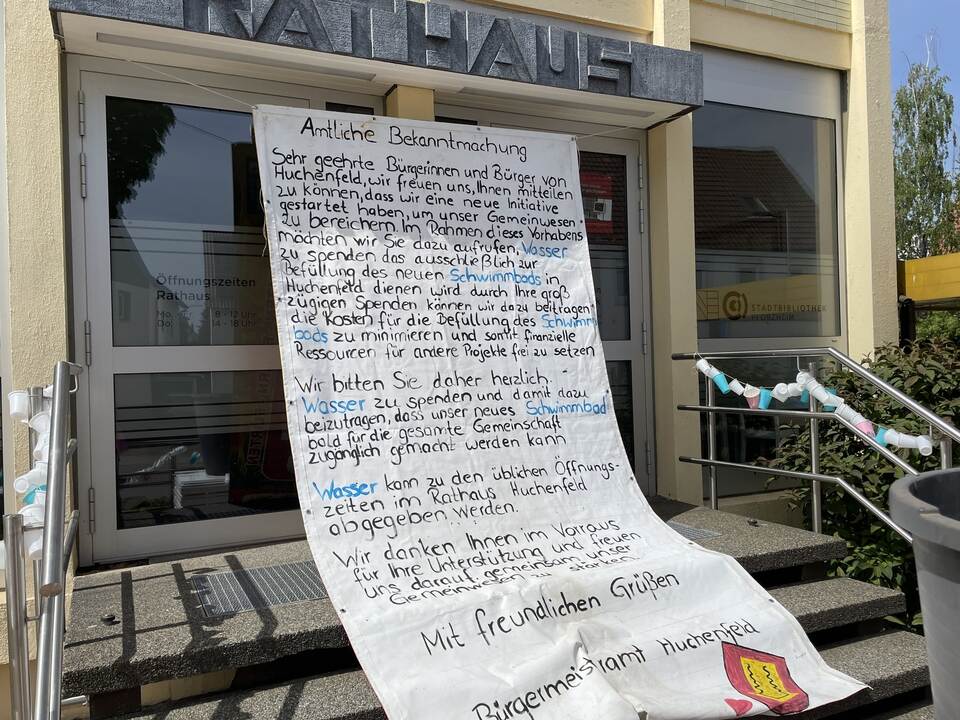 RATHAUS
Amtliche Bekanntmachung
Sehr geehrte Bürgerinnen und Bürger von
Huchenfeld, wir freuen uns, Ihnen mitteilen
zu können, dass wir eine neue Initiative
gestartet haben, um unser Gemeinwesen
zu bereichern. Im Rahmen dieses Vorhabens
möchten wir Sie dazu aufrufen, Wasser
zu spenden das ausschließlich zur
Befüllung des neuen Schwimmbads in
Huchenfeld dienen wird durch Ihre groß
zügigen Spenden können wir dazu beitragen
die Kosten für die Befüllung des Schwimm
bads zu minimieren und somit finanzielle
Ressourcen für andere Projekte frei zu setzen
Wir bitten Sie daher herzlich.
Wasser zu spenden und damit dazu
beizutragen, dass unser neues Schwimmbad
bald für die gesamte Gemeinschaft
zugänglich gemacht werden kann
Wasser kann zu den üblichen Öffnungs-
zeiten im Rathaus Huchenfeld
abgegeben werden.
Wir danken Ihnen im Vorraus
für Ihre Unterstützung und freuen
uns darauf, gemeinsam unser
Gemeinwesen zu stärken
Mit freundlichen Grüßen
Bürgermeistramt Huchenfeld
Öffnungszeiten
Rathaus
Mo. 8 - 12 Uhr
Do. 14 - 18 Uhr
STADTBIBLIOTHEK
PFORZHEIM